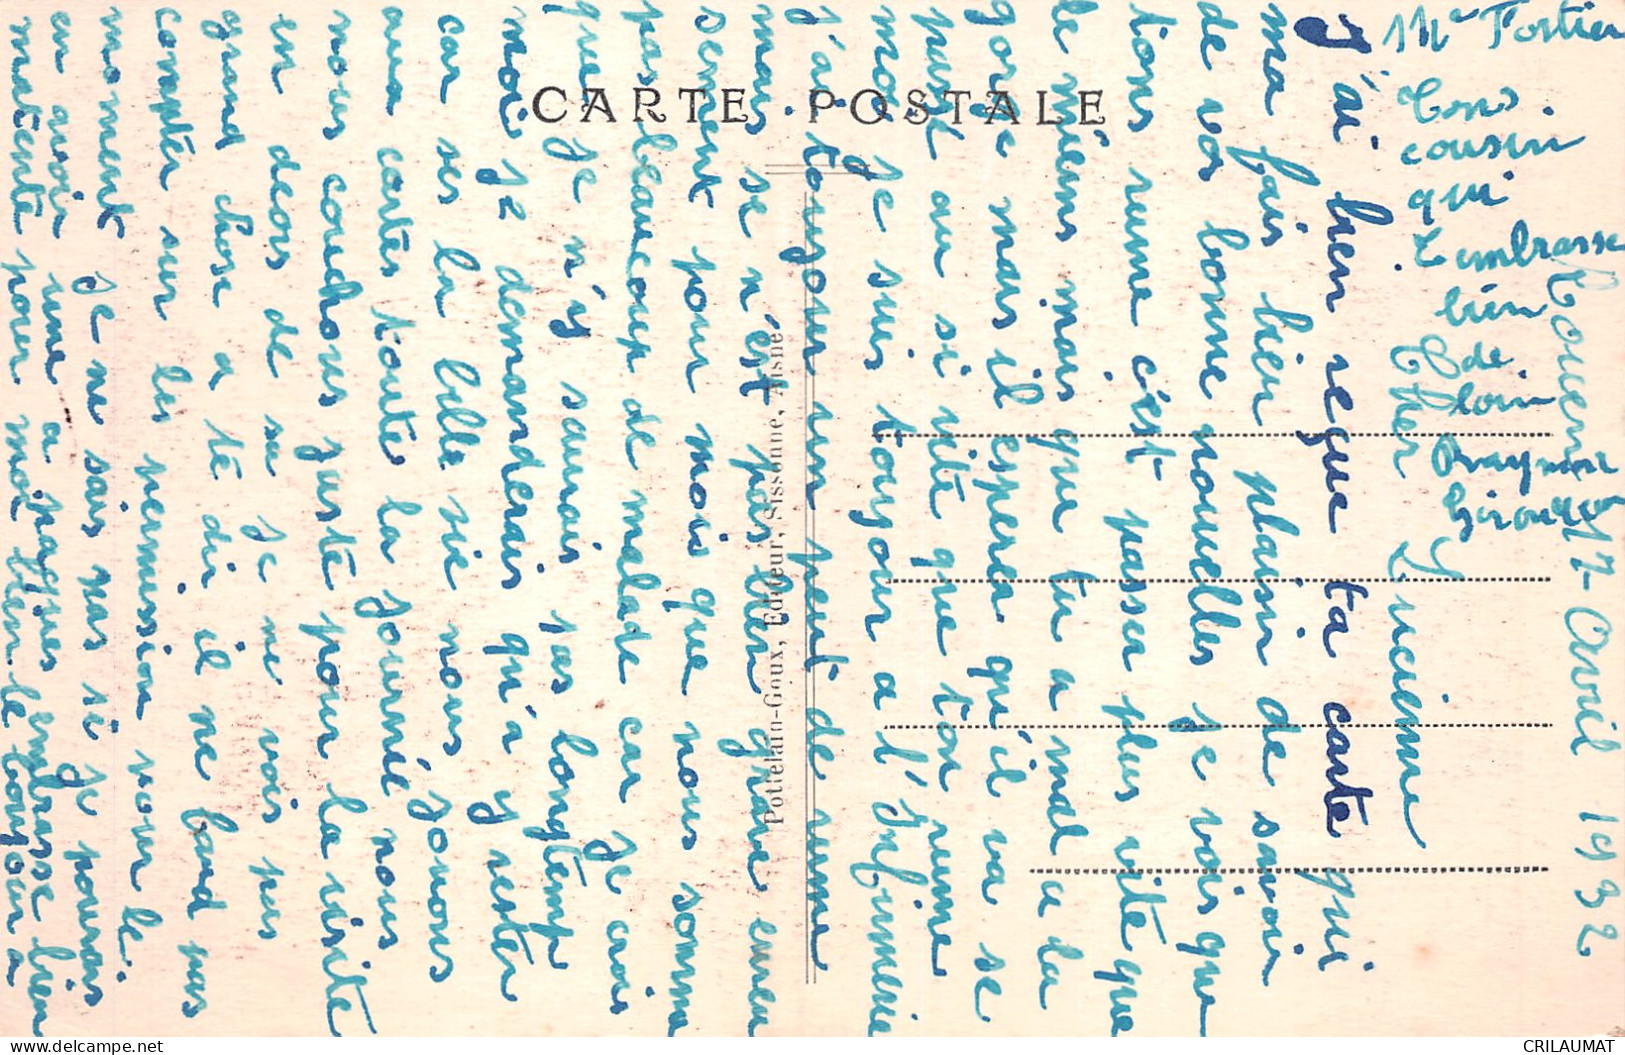 Rouen 17 Avril 1932
Cher Lucienne
J'ai bien reçue ta carte qui
ma fais bien plaisir de savoir
de vos bonne nouvelles je vois que
tions rume c'est passer plus vite que
le miens mais que tu a mal a la
gorge mais il esperea qu'il va se
passé au si vite que ton rume
moi je suis toujour a l'infirmerie
j'ai toujour un peut de rume
mais se n'est pas bien grave
sement pour mois que nous somme
pas beaucoup de malade car je crois
que je n'y saurais pas longtemp
moi je demanderais qu'a y rester
car ses la bille vie nous jouons
aux cartes toute la journée nous
nous couchons juste pour la visite
en deors de sa je ne vois pas
grand chose a te dir il ne faud pas
compter sur les permission pour le
moment je ne sais pas si je pourrais
en avoir une a paques embrasse bien
matiente pour moi bien le bonjour a
Me Fortier
Tons
cousin
qui
t'embrasse
bien
de
loin
Raymond
CARTE POSTALE
Pottelain-Goux, Editeur, Sissonne, Aisne
CRILAUMAT